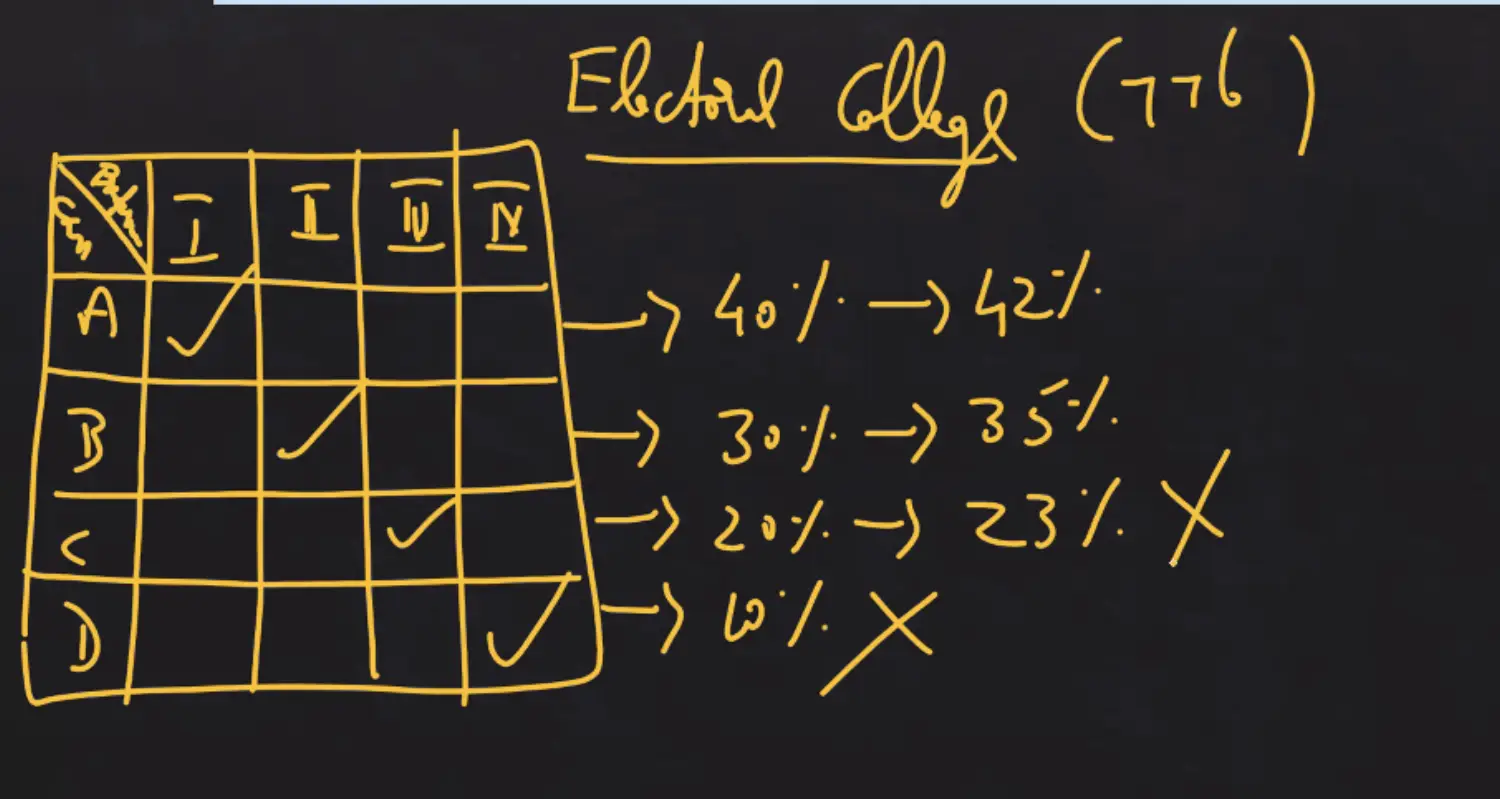 Electoral College (776)
I II IV IV
A → 40% → 42%
B → 30% → 35%
C → 20% → 23% X
D → 10% X